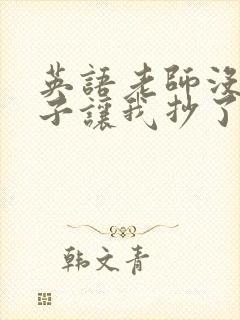 英語老師沒
子讓我抄了
韩文青